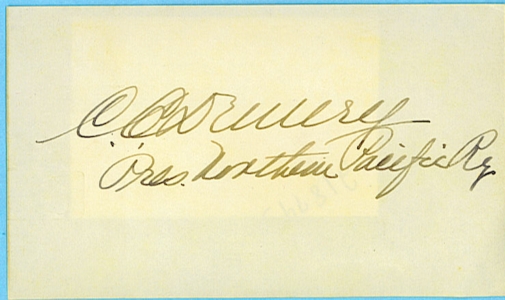 C. E. Denney
Pres. Northern Pacific Ry